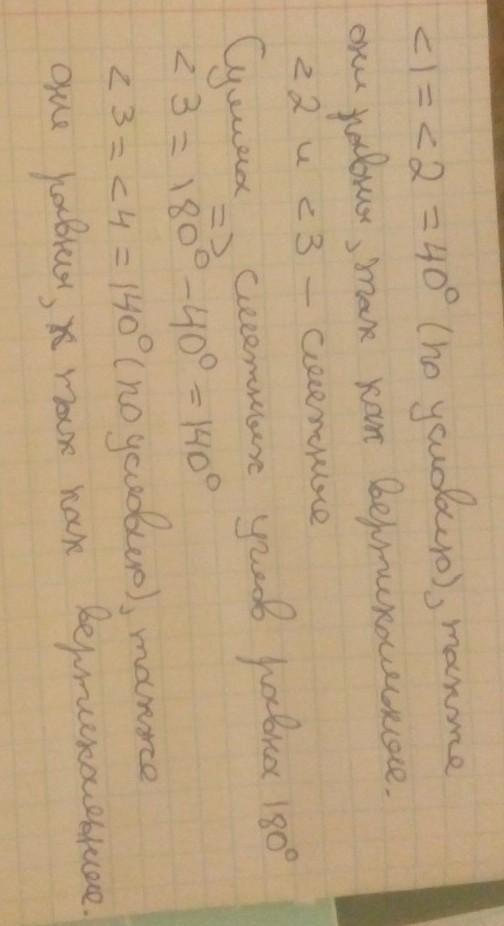 <1 = <2 = 40° (по условию), также
они равны, так как вертикальные.
<2 и <3 - смежные
=>
Сумма смежных углов равна 180°
<3 = 180° - 40° = 140°
<3 = <4 = 140° (по условию), также
они равны, так как вертикальные.